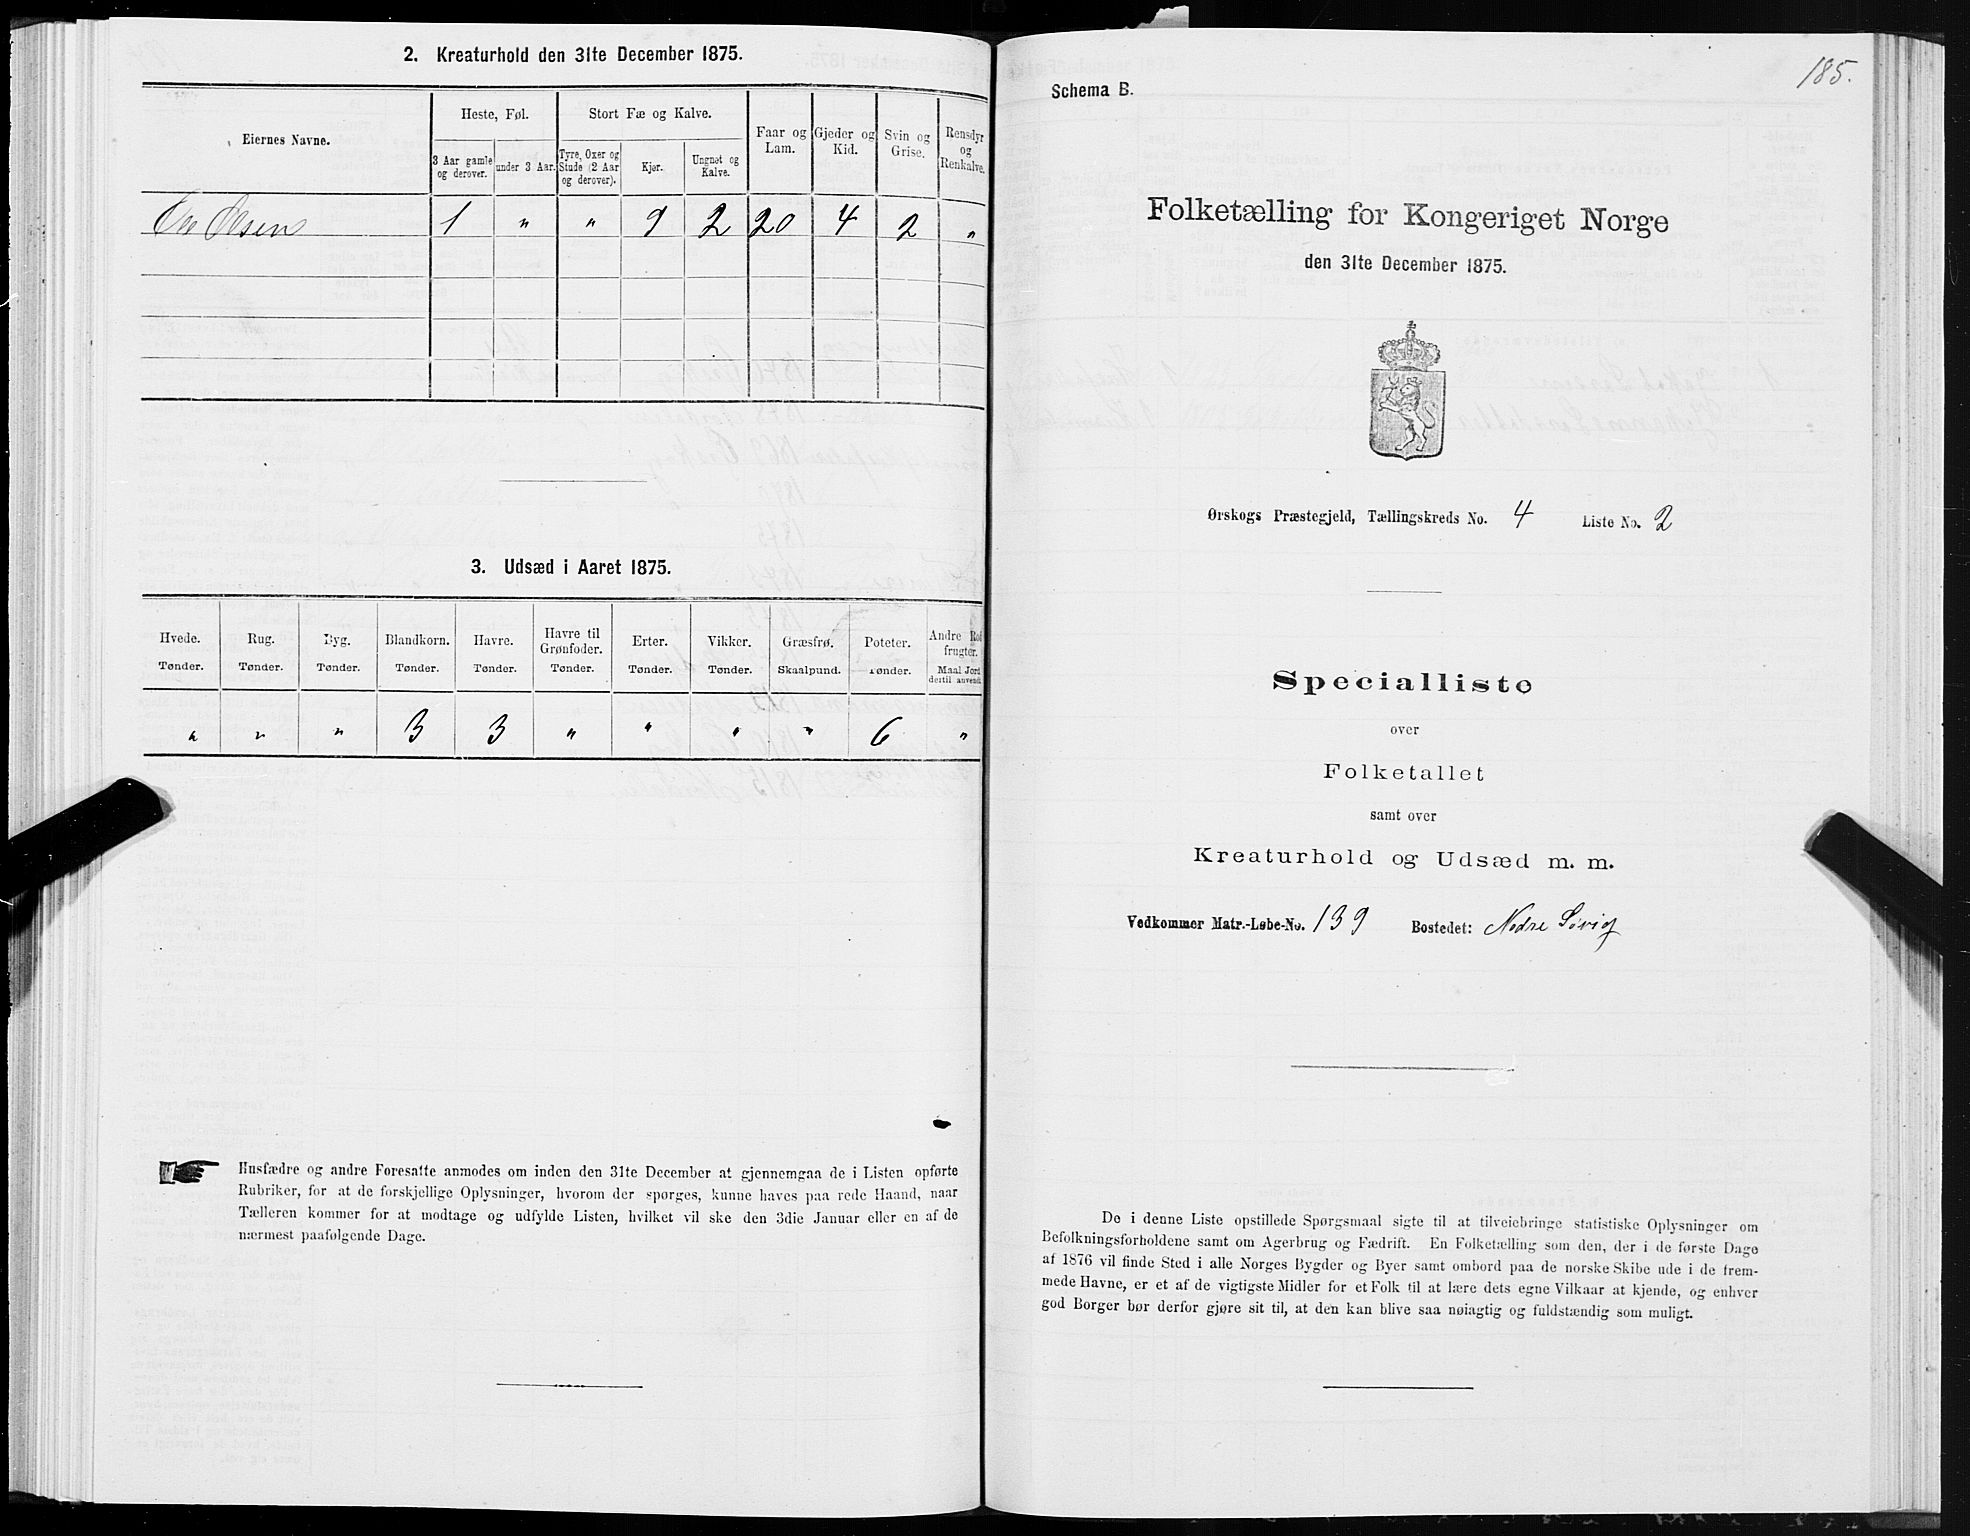 2. Kreaturhold den 31te December 1875.
Eiernes Navne.
Heste, Føl.
Stort Fæ og Kalve.
Faar og Lam.
Gjeder og Kid.
Svin og Grise.
Rensdyr og Renkalve.
3 Aar gamle og derover.
under 3 Aar.
Tyre, Oxer og Stude (2 Aar og derover).
Kjør.
Ungnøt og Kalve.
Ole Olsen 1 " " 9 2 20 4 2 "
3. Udsæd i Aaret 1875.
Hvede. Rug. Byg. Blandkorn. Havre. Havre til Grønfoder. Erter. Vikker. Græsfrø. Poteter. Andre Rodfrugter.
Tønder. Tønder. Tønder. Tønder. Tønder. Tønder. Tønder. Tønder. Skaalpund. Tønder. Maal Jord dertil anvendt.
" " " 3 3 " " " " 6 "
Husfædre og andre Foresatte anmodes om inden den 31te December at gjennemgaa de i Listen opførte
Rubriker, for at de forskjellige Oplysninger, hvorom der spørges, kunne haves paa rede Haand, naar
Tælleren kommer for at modtage og udfylde Listen, hvilket vil ske den 3die Januar eller en af de
nærmest paafølgende Dage.
185.
Schema B.
Folketælling for Kongeriget Norge
den 31te December 1875.
Ørskogs Præstegjeld, Tællingskreds No. 4 Liste No. 2
Specialliste
over
Folketallet
samt over
Kreaturhold og Udsæd m. m.
Vedkommer Matr.-Løbe-No. 139 Bostedet: Nedre Søvig
De i denne Liste opstillede Spørgsmaal sigte til at tilveiebringe statistiske Oplysninger om
Befolkningsforholdene samt om Agerbrug og Fædrift. En Folketælling som den, der i de første Dage
af 1876 vil finde Sted i alle Norges Bygder og Byer samt ombord paa de norske Skibe ude i de frem-
mede Havne, er et af de vigtigste Midler for et Folk til at lære dets egne Vilkaar at kjende, og enhver
god Borger bør derfor gjøre sit til, at den kan blive saa nøiagtig og fuldstændig som muligt.